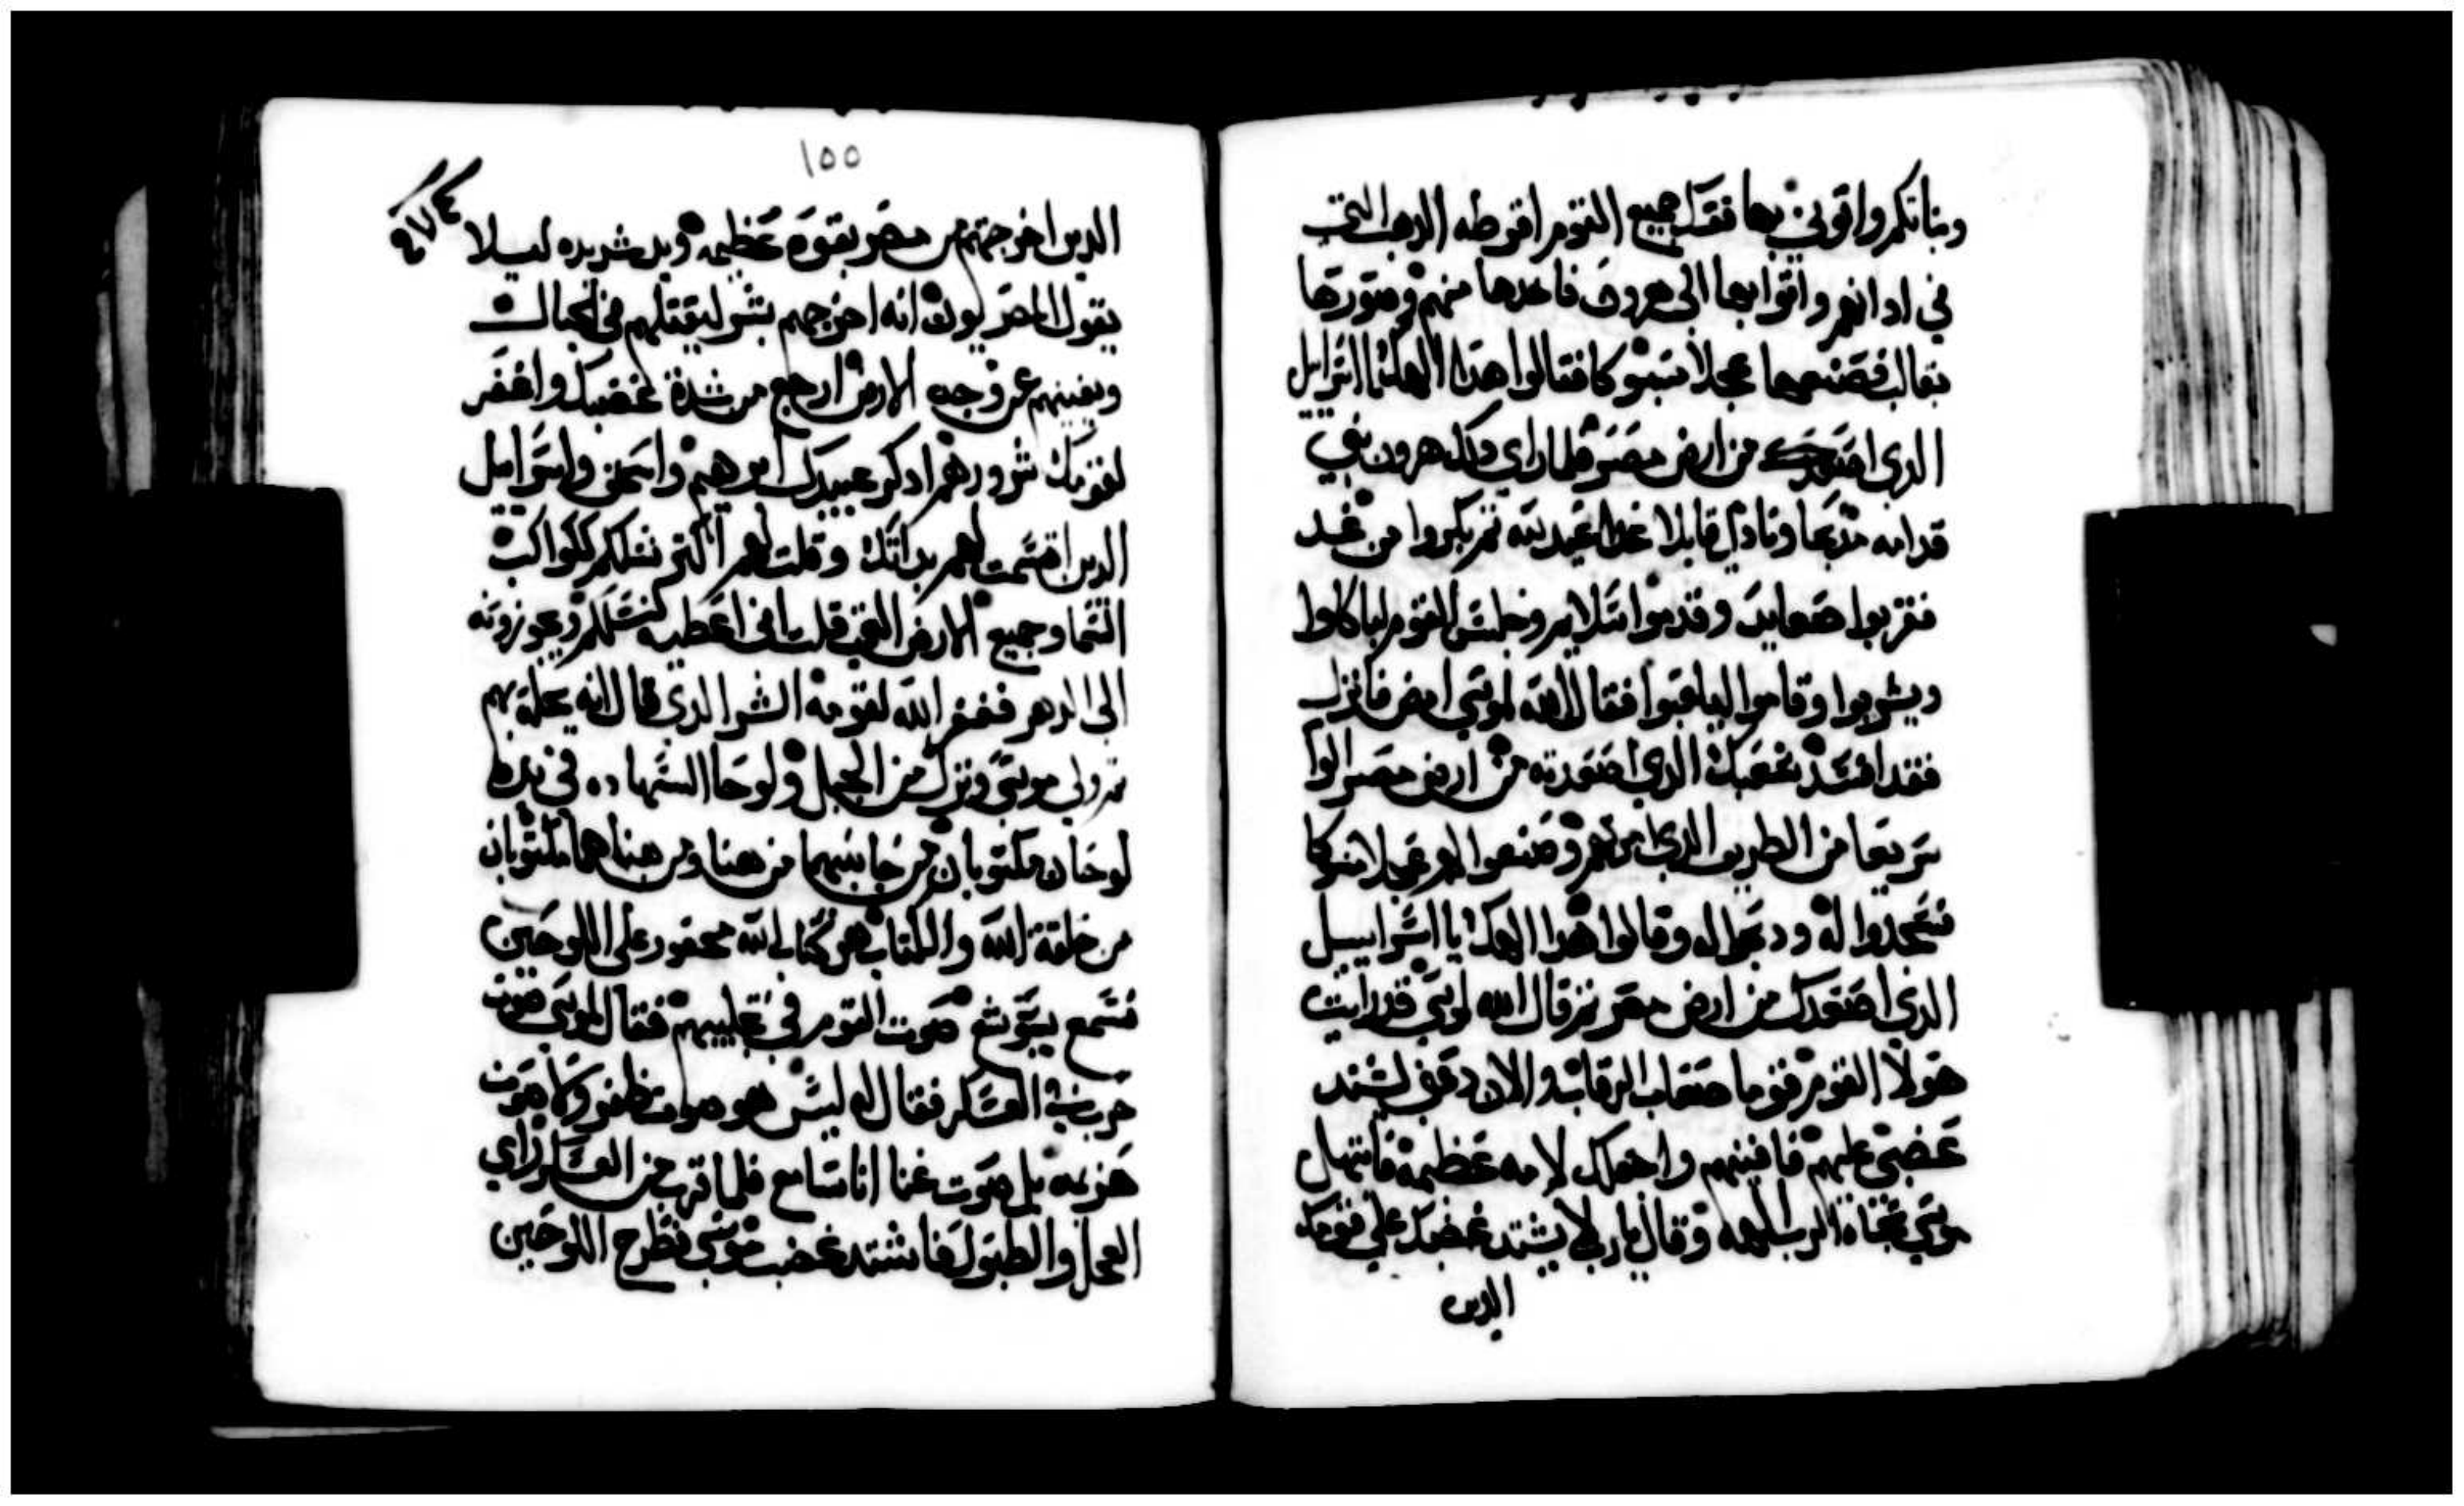 وبناتكم واتوني بها ففك جميع القوم اقرطه الدهب التي
في ادانهم واتوا بها الى هرون فاخدها منهم وصورها
بقالب فصنعها عجلا مسبوكا فقالوا هدا الهك يا اسراييل
الدي اصعدك من ارض مصر فلما راي دلك هرون بني
قدامه مدبحا ونادي قايلا غدا عيد لله ثم بكروا من غد
فقربوا صعايد وقدموا سلايم وجلس القوم لياكلوا
ويشربوا وقاموا ليلعبوا فقال الله لموسي امض فانزل
فقد افسد شعبك الدي اصعدته من ارض مصر زالوا
سريعا من الطريق الدي امرتهم وصنعوا لهم عجلا مسبوكا
فسجدوا له ودبحوا له وقالوا هدا الهك يا اسراييل
الدي اصعدك من ارض مصر ثم قال الله لموسي قد رايت
هولا القوم فقوما صعاب الرقاب والان دعني ليشتد
غضبي عليهم فافنيهم واجعلك لامه عظيمه فابتهل
موسي تجاه الرب الهه وقال يارب لا يشتد غضبك علي قومك
الدين
١٥٥
الدين اخرجتهم من مصر بقوه عظيمه ويد شديده ليلا
يقول المصريون انه اخرجهم بشر ليقتلهم في الجبال
ويفنيهم عن وجه الارض ارجع من شدة غضبك واغفر
لقومك شرورهم ادكر عبيدك ابرهيم واسحق واسراييل
الدين اقسمت لهم بداتك وقلت لهم اكثر نسلكم ككواكب
السما وجميع الارض التي قلت اني اعطيه لنسلكم ويحوزونه
الى الدهر فغفر الله لقومه الشر الدي قال انه يحله بهم
ثم ولي موسي ونزل من الجبل ولوحا الشهاده في يده
لوحان مكتوبان من جانبيهما من هنا ومن هنا هما مكتوبان
من خلقة الله والكتاب هو كتاب الله محفور على اللوحين
فسمع يشوع صوت القوم في جلبيهم فقال لموسي صوت
حرب في العسكر فقال له ليس هو صوت ظفر ولا صوت
هزيمه بل صوت غنا انا سامع فلما قرب من العسكر راي
العجل والطبول فاشتد غضب موسي فطرح اللوحين